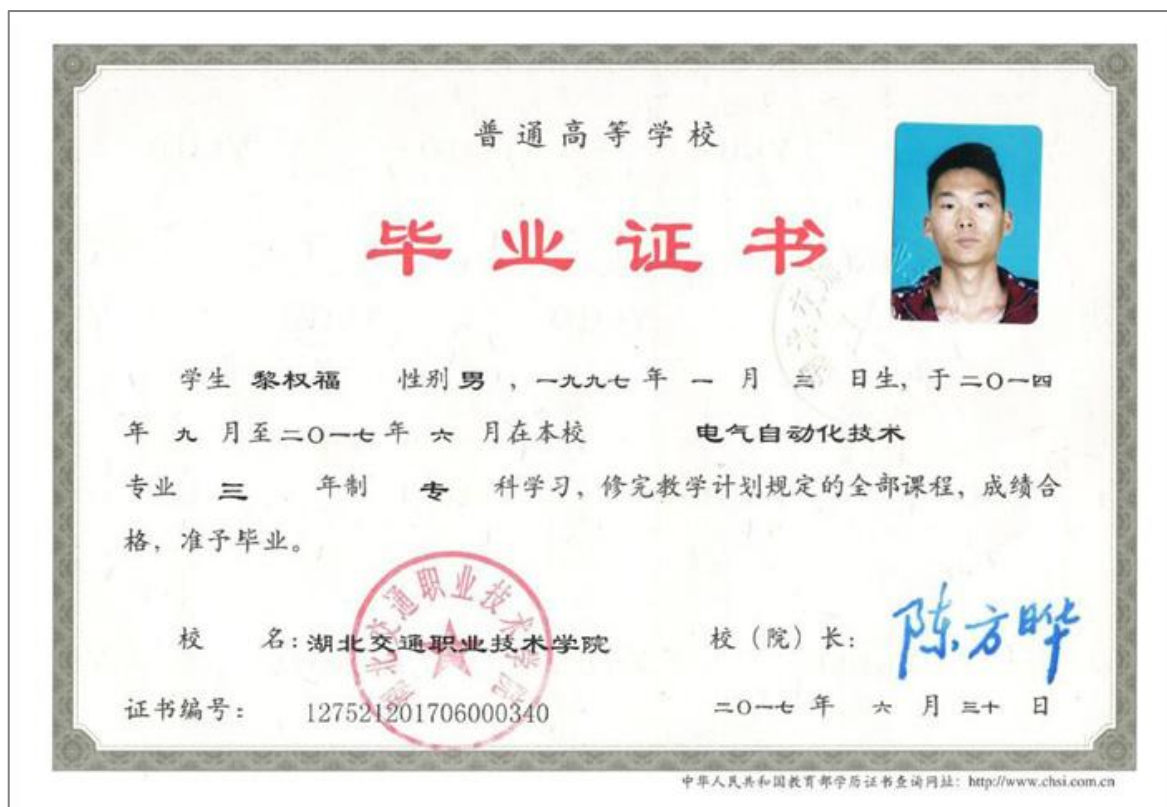 普通高等学校
毕业证书
学生 黎权福 性别 男 ，一九九七 年 一 月 三 日生，于 二〇一四
年 九 月至 二〇一七 年 六 月在本校 电气自动化技术
专业 三 年制 专 科学习，修完教学计划规定的全部课程，成绩合
格，准予毕业。
湖北交通职业技术学院
校 名：湖北交通职业技术学院 校（院）长： 陈方晔
证书编号： 127521201706000340 二〇一七 年 六 月 三十 日
中华人民共和国教育部学历证书查询网址：http://www.chsi.com.cn